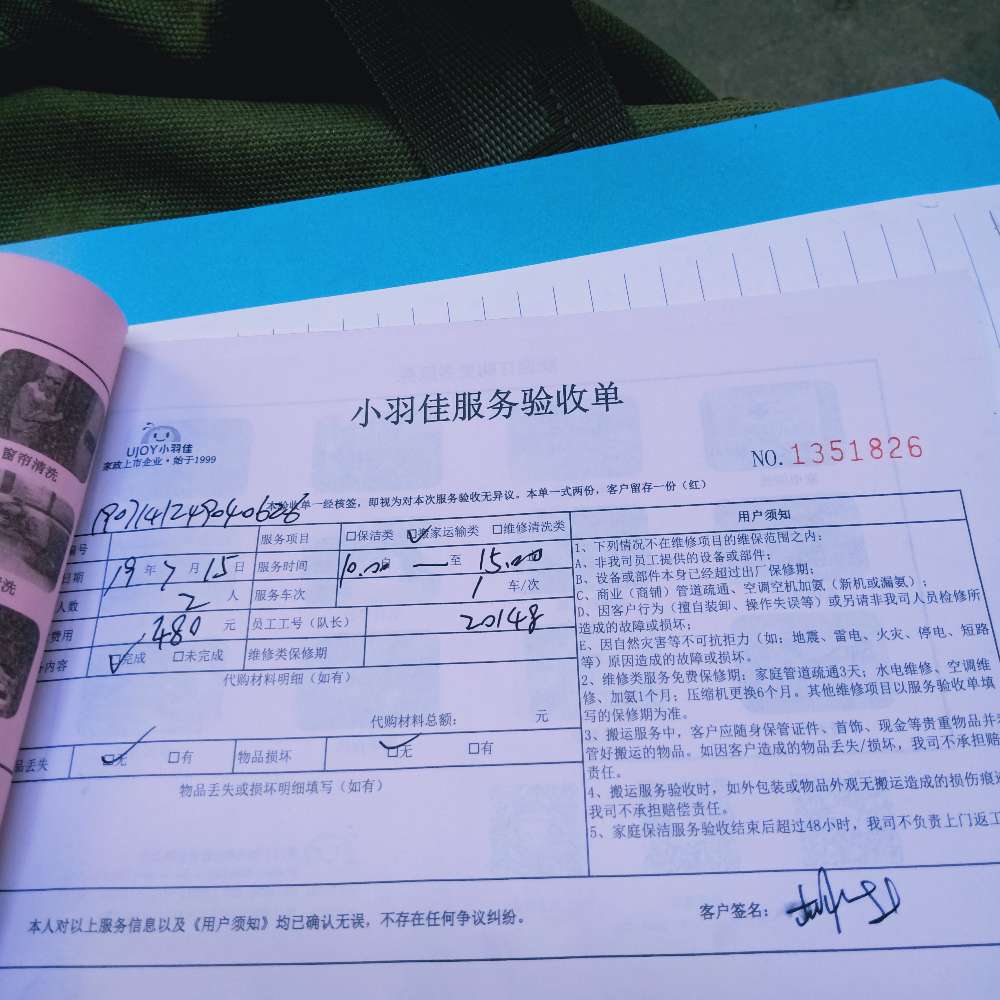 小羽佳服务验收单
UJOY小羽佳
家政上市企业·始于1999
NO. 1351826
本验收单一经核签，即视为对本次服务验收无异议。本单一式两份，客户留存一份（红）
190714124904062
编号
服务项目 □保洁类 □搬家运输类 □维修清洗类
日期 19年7月15日 服务时间 10.00 — 至 15.00
人数 2人 服务车次 1 车/次
费用 480元 员工工号（队长） 20148
内容 □完成 □未完成 维修类保修期
代购材料明细（如有）
代购材料总额： 元
品丢失 □无 □有 物品损坏 □无 □有
物品丢失或损坏明细填写（如有）
用户须知
1、下列情况不在维修项目的维保范围之内：
A、非我司员工提供的设备或部件；
B、设备或部件本身已经超过出厂保修期；
C、商业（商铺）管道疏通、空调空机加氨（新机或漏氨）；
D、因客户行为（擅自装卸、操作失误等）或另请非我司人员检修所
造成的故障或损坏；
E、因自然灾害等不可抗拒力（如：地震、雷电、火灾、停电、短路
等）原因造成的故障或损坏。
2、维修类服务免费保修期：家庭管道疏通3天；水电维修、空调维
修、加氨1个月；压缩机更换6个月。其他维修项目以服务验收单填
写的保修期为准。
3、搬运服务中，客户应随身保管证件、首饰、现金等贵重物品并
管好搬运的物品。如因客户造成的物品丢失/损坏，我司不承担赔
责任。
4、搬运服务验收时，如外包装或物品外观无搬运造成的损伤痕
我司不承担赔偿责任。
5、家庭保洁服务验收结束后超过48小时，我司不负责上门返工
本人对以上服务信息以及《用户须知》均已确认无误，不存在任何争议纠纷。
客户签名：
窗帘清洗
洗